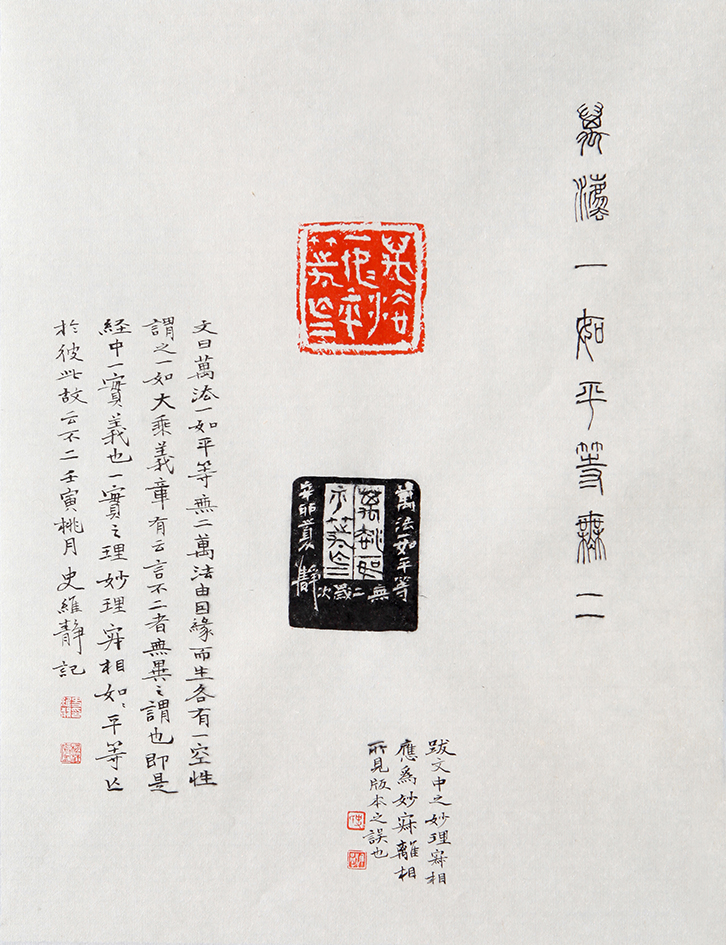 萬灋一如平等無二
萬法一如平等
無二歲次
辛卯夏靜
文曰萬法一如平等無二萬法由因緣而生各有一空性
謂之一如大乘義章有云言不二者無異之謂也即是
経中一實義也一實之理妙理寂相如如平等亡
於彼此故云不二壬寅桃月史維靜記
跋文中之妙理寂相
應爲妙寂離相
所見版本之誤也